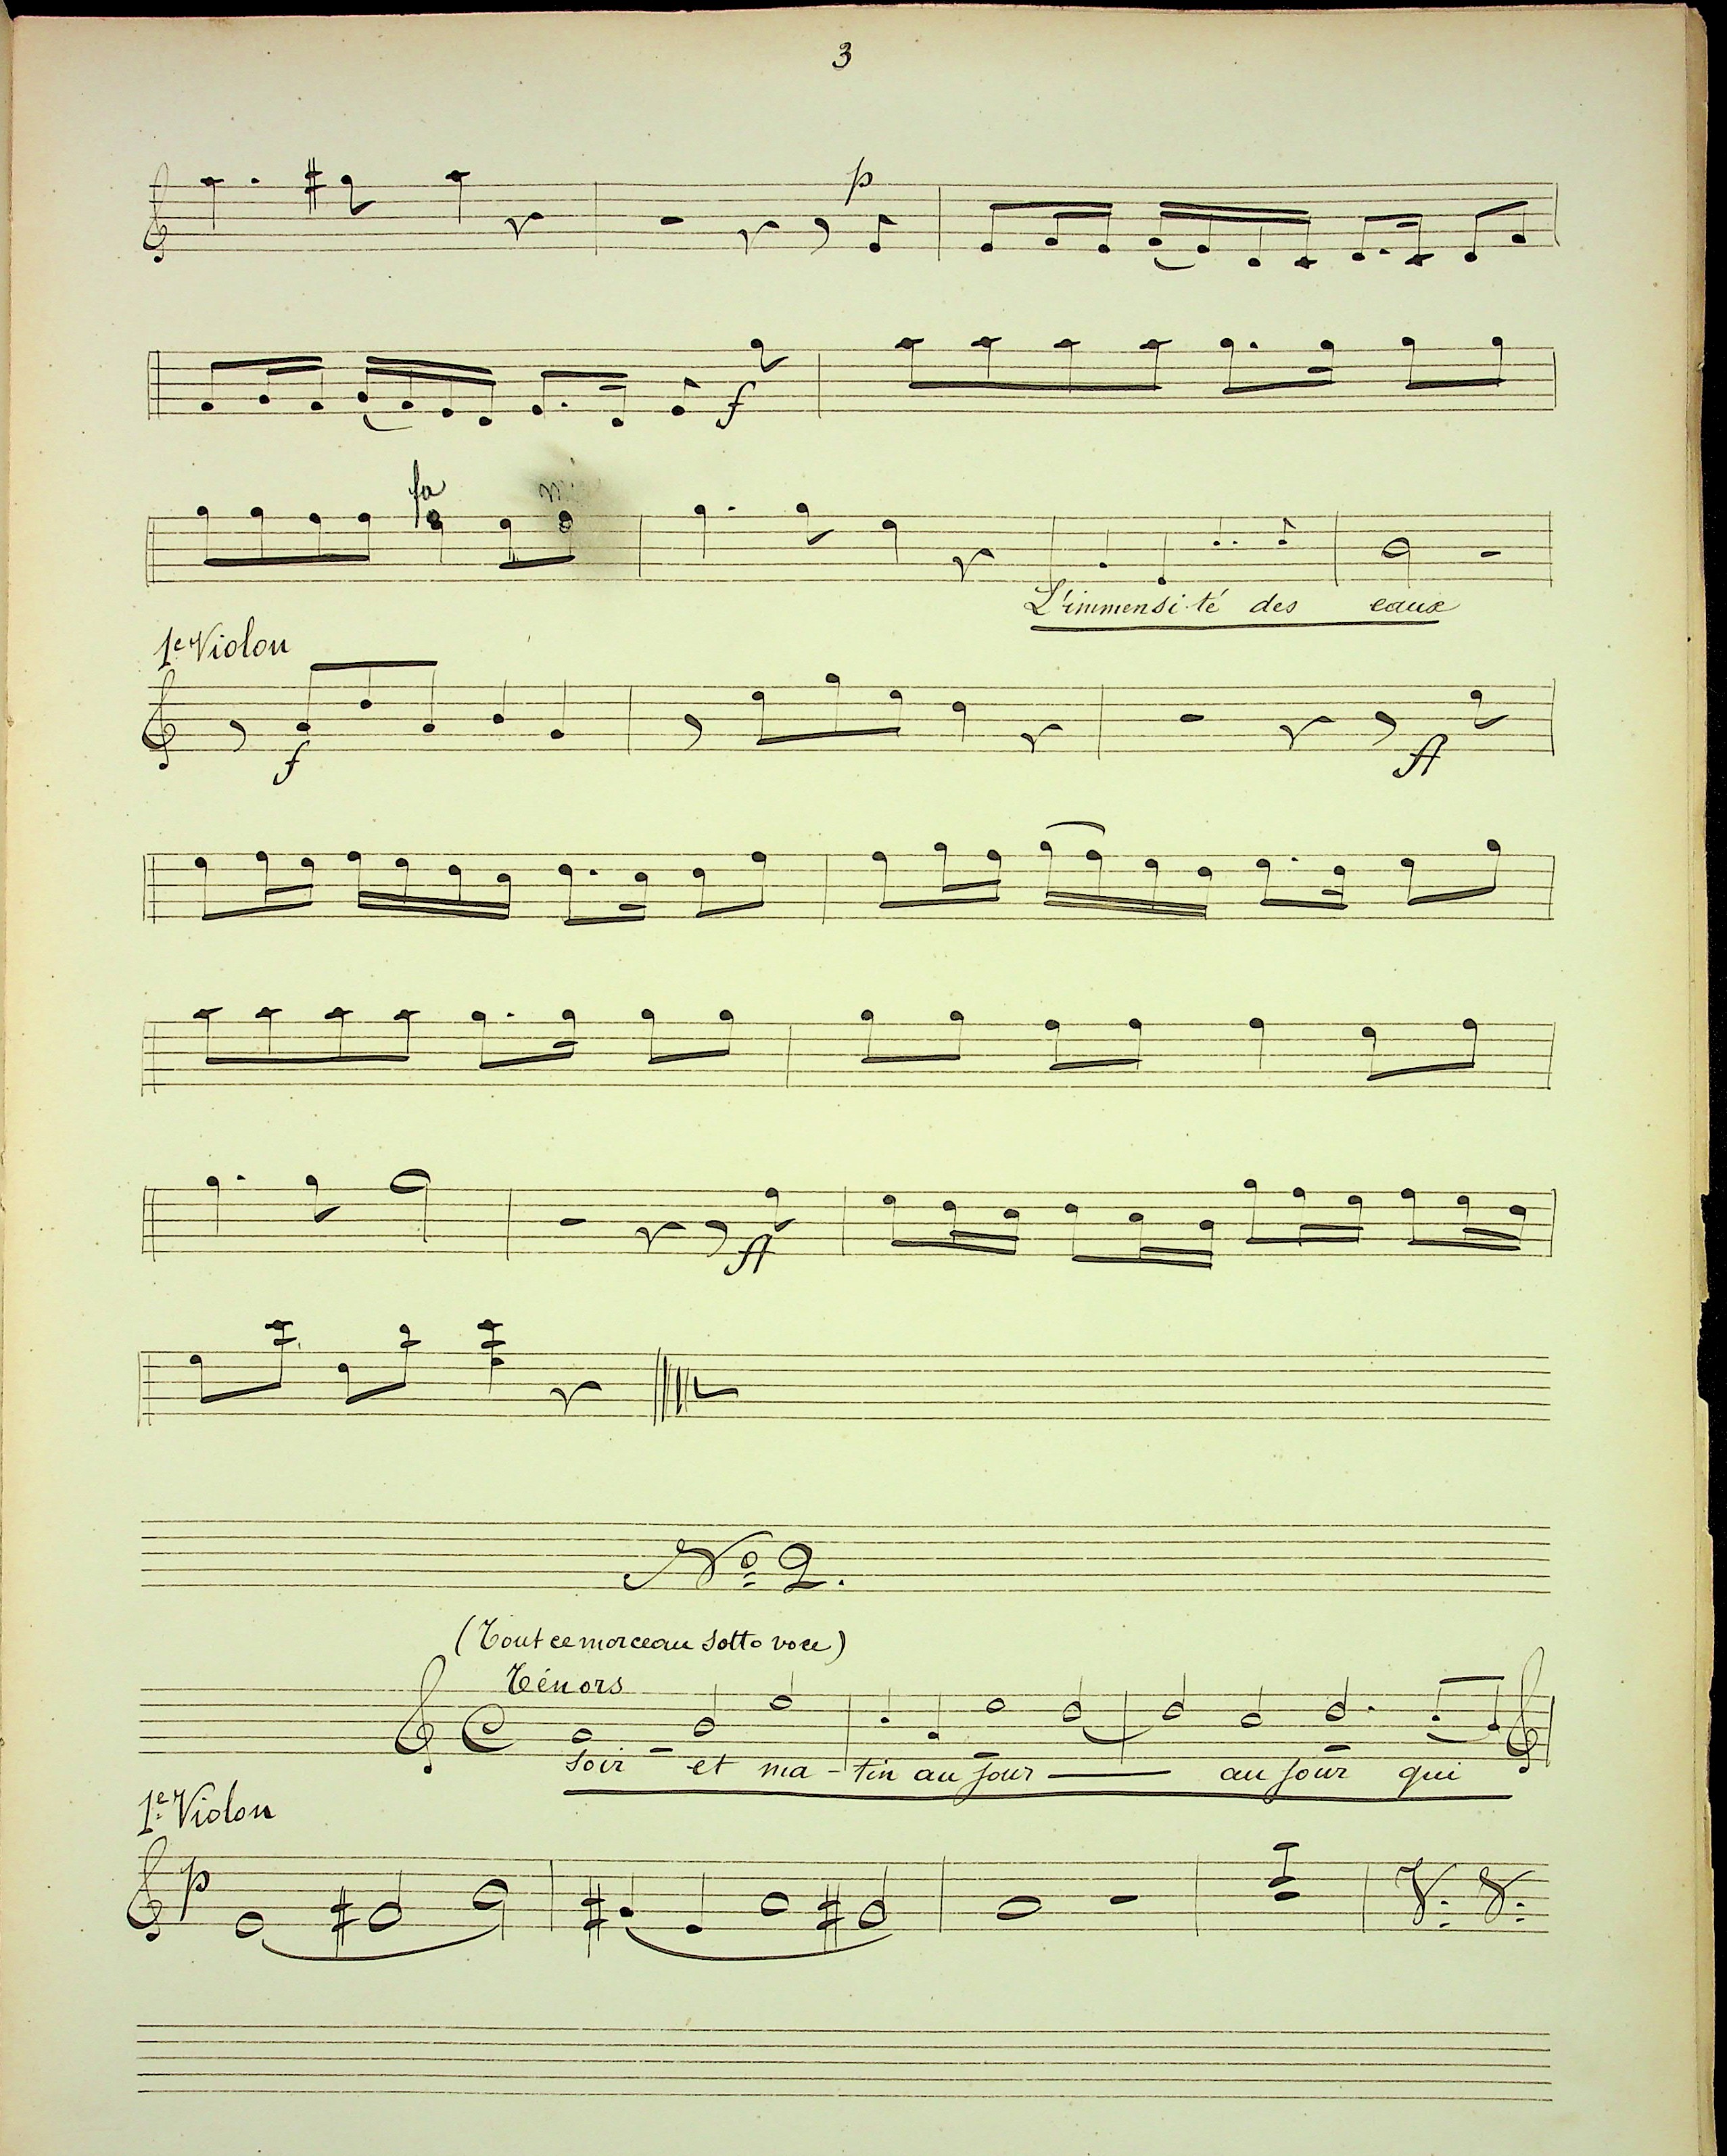 3
p
f
fa mi
L'immensi-té des eaux
1e Violon
f
ff
ff
No 2.
(Tout ce morceau Sotto voce)
Ténors
Soir et ma-tin au jour — au jour qui
1e Violon
p
V. S.